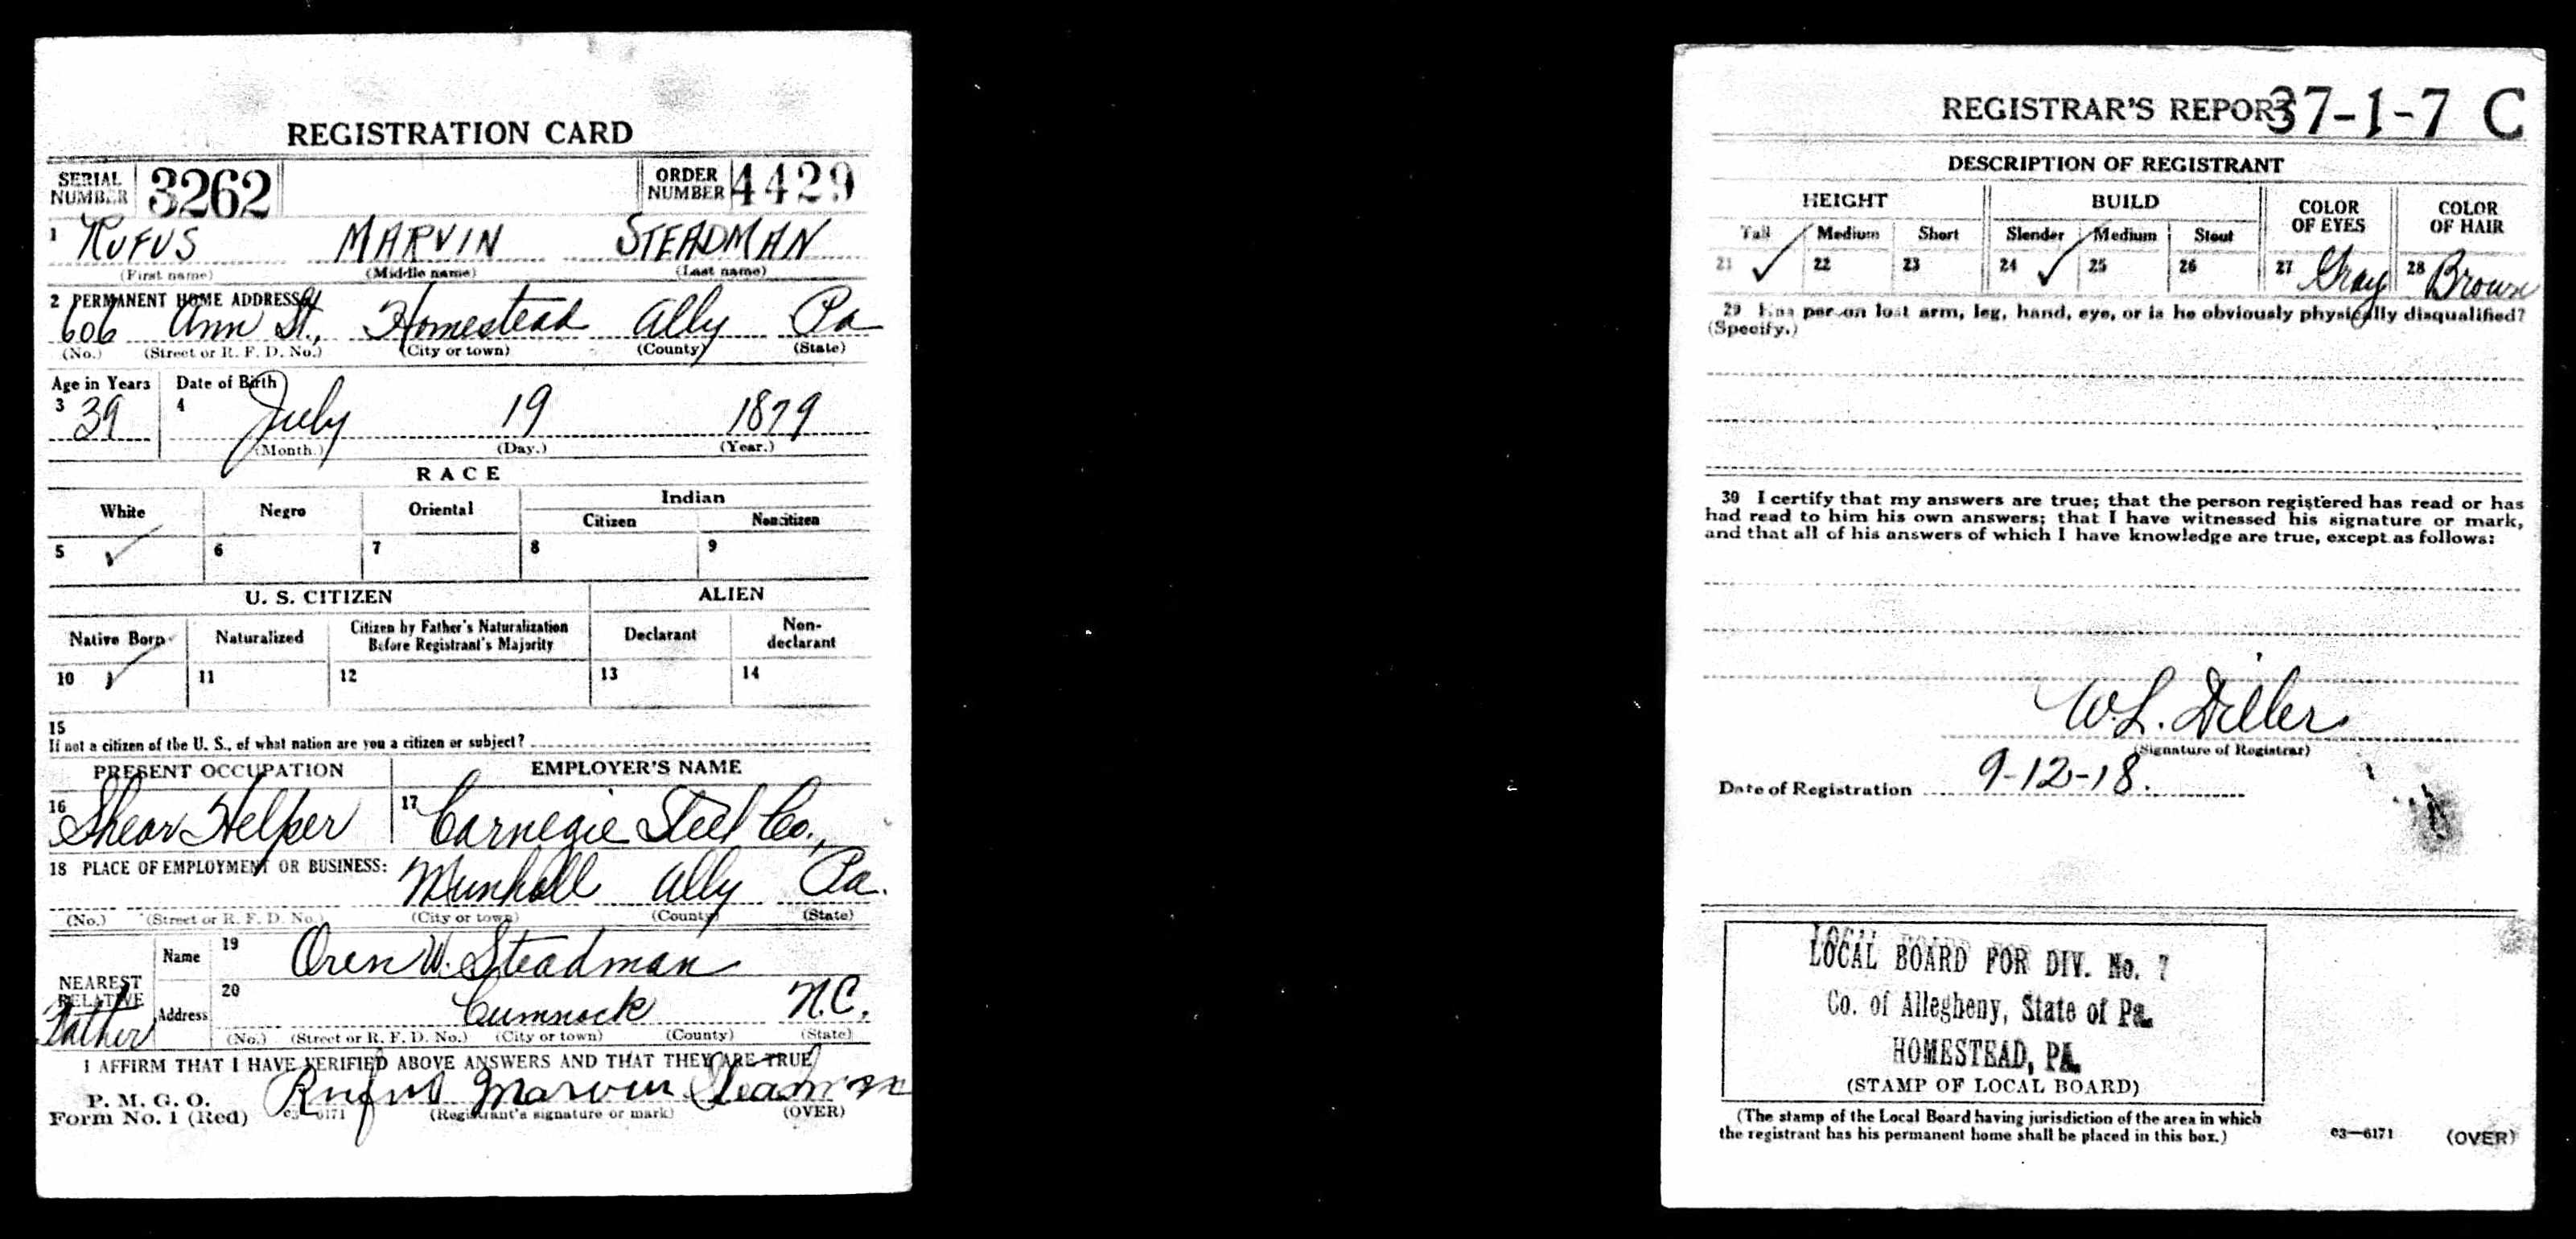 REGISTRATION CARD
SERIAL NUMBER 3262 ORDER NUMBER 4429
1 RUFUS MARVIN STEADMAN
(First name) (Middle name) (Last name)
2 PERMANENT HOME ADDRESS:
606 Ann St., Homestead Ally Pa
(No.) (Street or R. F. D. No.) (City or town) (County) (State)
Age in Years Date of Birth
3 39 4 July 19 1879
(Month.) (Day.) (Year.)
RACE
White Negro Oriental Indian
Citizen Noncitizen
5 ✓ 6 7 8 9
U. S. CITIZEN ALIEN
Native Born Naturalized Citizen by Father's Naturalization Before Registrant's Majority Declarant Non-declarant
10 ✓ 11 12 13 14
15
If not a citizen of the U. S., of what nation are you a citizen or subject?
PRESENT OCCUPATION EMPLOYER'S NAME
16 Shear Helper 17 Carnegie Steel Co.,
18 PLACE OF EMPLOYMENT OR BUSINESS:
Munhall Ally Pa.
(No.) (Street or R. F. D. No.) (City or town) (County) (State)
NEAREST RELATIVE Father
Name 19 Oren W. Steadman
Address 20 Cumnock N.C.
(No.) (Street or R. F. D. No.) (City or town) (County) (State)
I AFFIRM THAT I HAVE VERIFIED ABOVE ANSWERS AND THAT THEY ARE TRUE
P. M. G. O.
Form No. 1 (Red) c3—6171 Rufus Marvin Steadman
(Registrant's signature or mark) (OVER)
REGISTRAR'S REPORT 37-1-7 C
DESCRIPTION OF REGISTRANT
HEIGHT BUILD COLOR OF EYES COLOR OF HAIR
Tall Medium Short Slender Medium Stout
21 ✓ 22 23 24 ✓ 25 26 27 Gray 28 Brown
29 Has person lost arm, leg, hand, eye, or is he obviously physically disqualified?
(Specify.)
30 I certify that my answers are true; that the person registered has read or has
had read to him his own answers; that I have witnessed his signature or mark,
and that all of his answers of which I have knowledge are true, except as follows:
W. L. Diller
(Signature of Registrar)
Date of Registration 9-12-18.
LOCAL BOARD FOR DIV. No. 7
Co. of Allegheny, State of Pa.
HOMESTEAD, PA.
(STAMP OF LOCAL BOARD)
(The stamp of the Local Board having jurisdiction of the area in which
the registrant has his permanent home shall be placed in this box.)
c3—6171 (OVER)